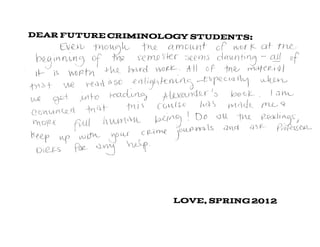 DEAR FUTURE CRIMINOLOGY STUDENTS:
Even though the amount of work at the
beginning of the semester seems daunting - all of
it is worth the hard work. All of the material
that we read is enlightening - Especially when
we get into reading Alexander's book. I am
convinced that this course has made me a
more full human being! Do all the readings,
keep up with your crime journals and ask Professor
Dierks for any help.
LOVE, SPRING 2012